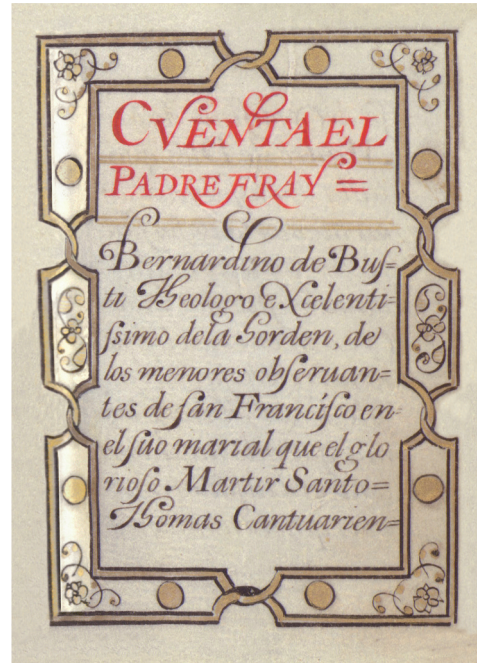 CVENTA EL
PADRE FRAY =
Bernardino de Buſ=
ti Theologo eXcelenti=
ſsimo dela horden, de
los menores obſeruan=
tes de ſan Franciſco en=
el ſuo marial que el glo
rioſo Martir Santo=
Thomas Cantuarien=